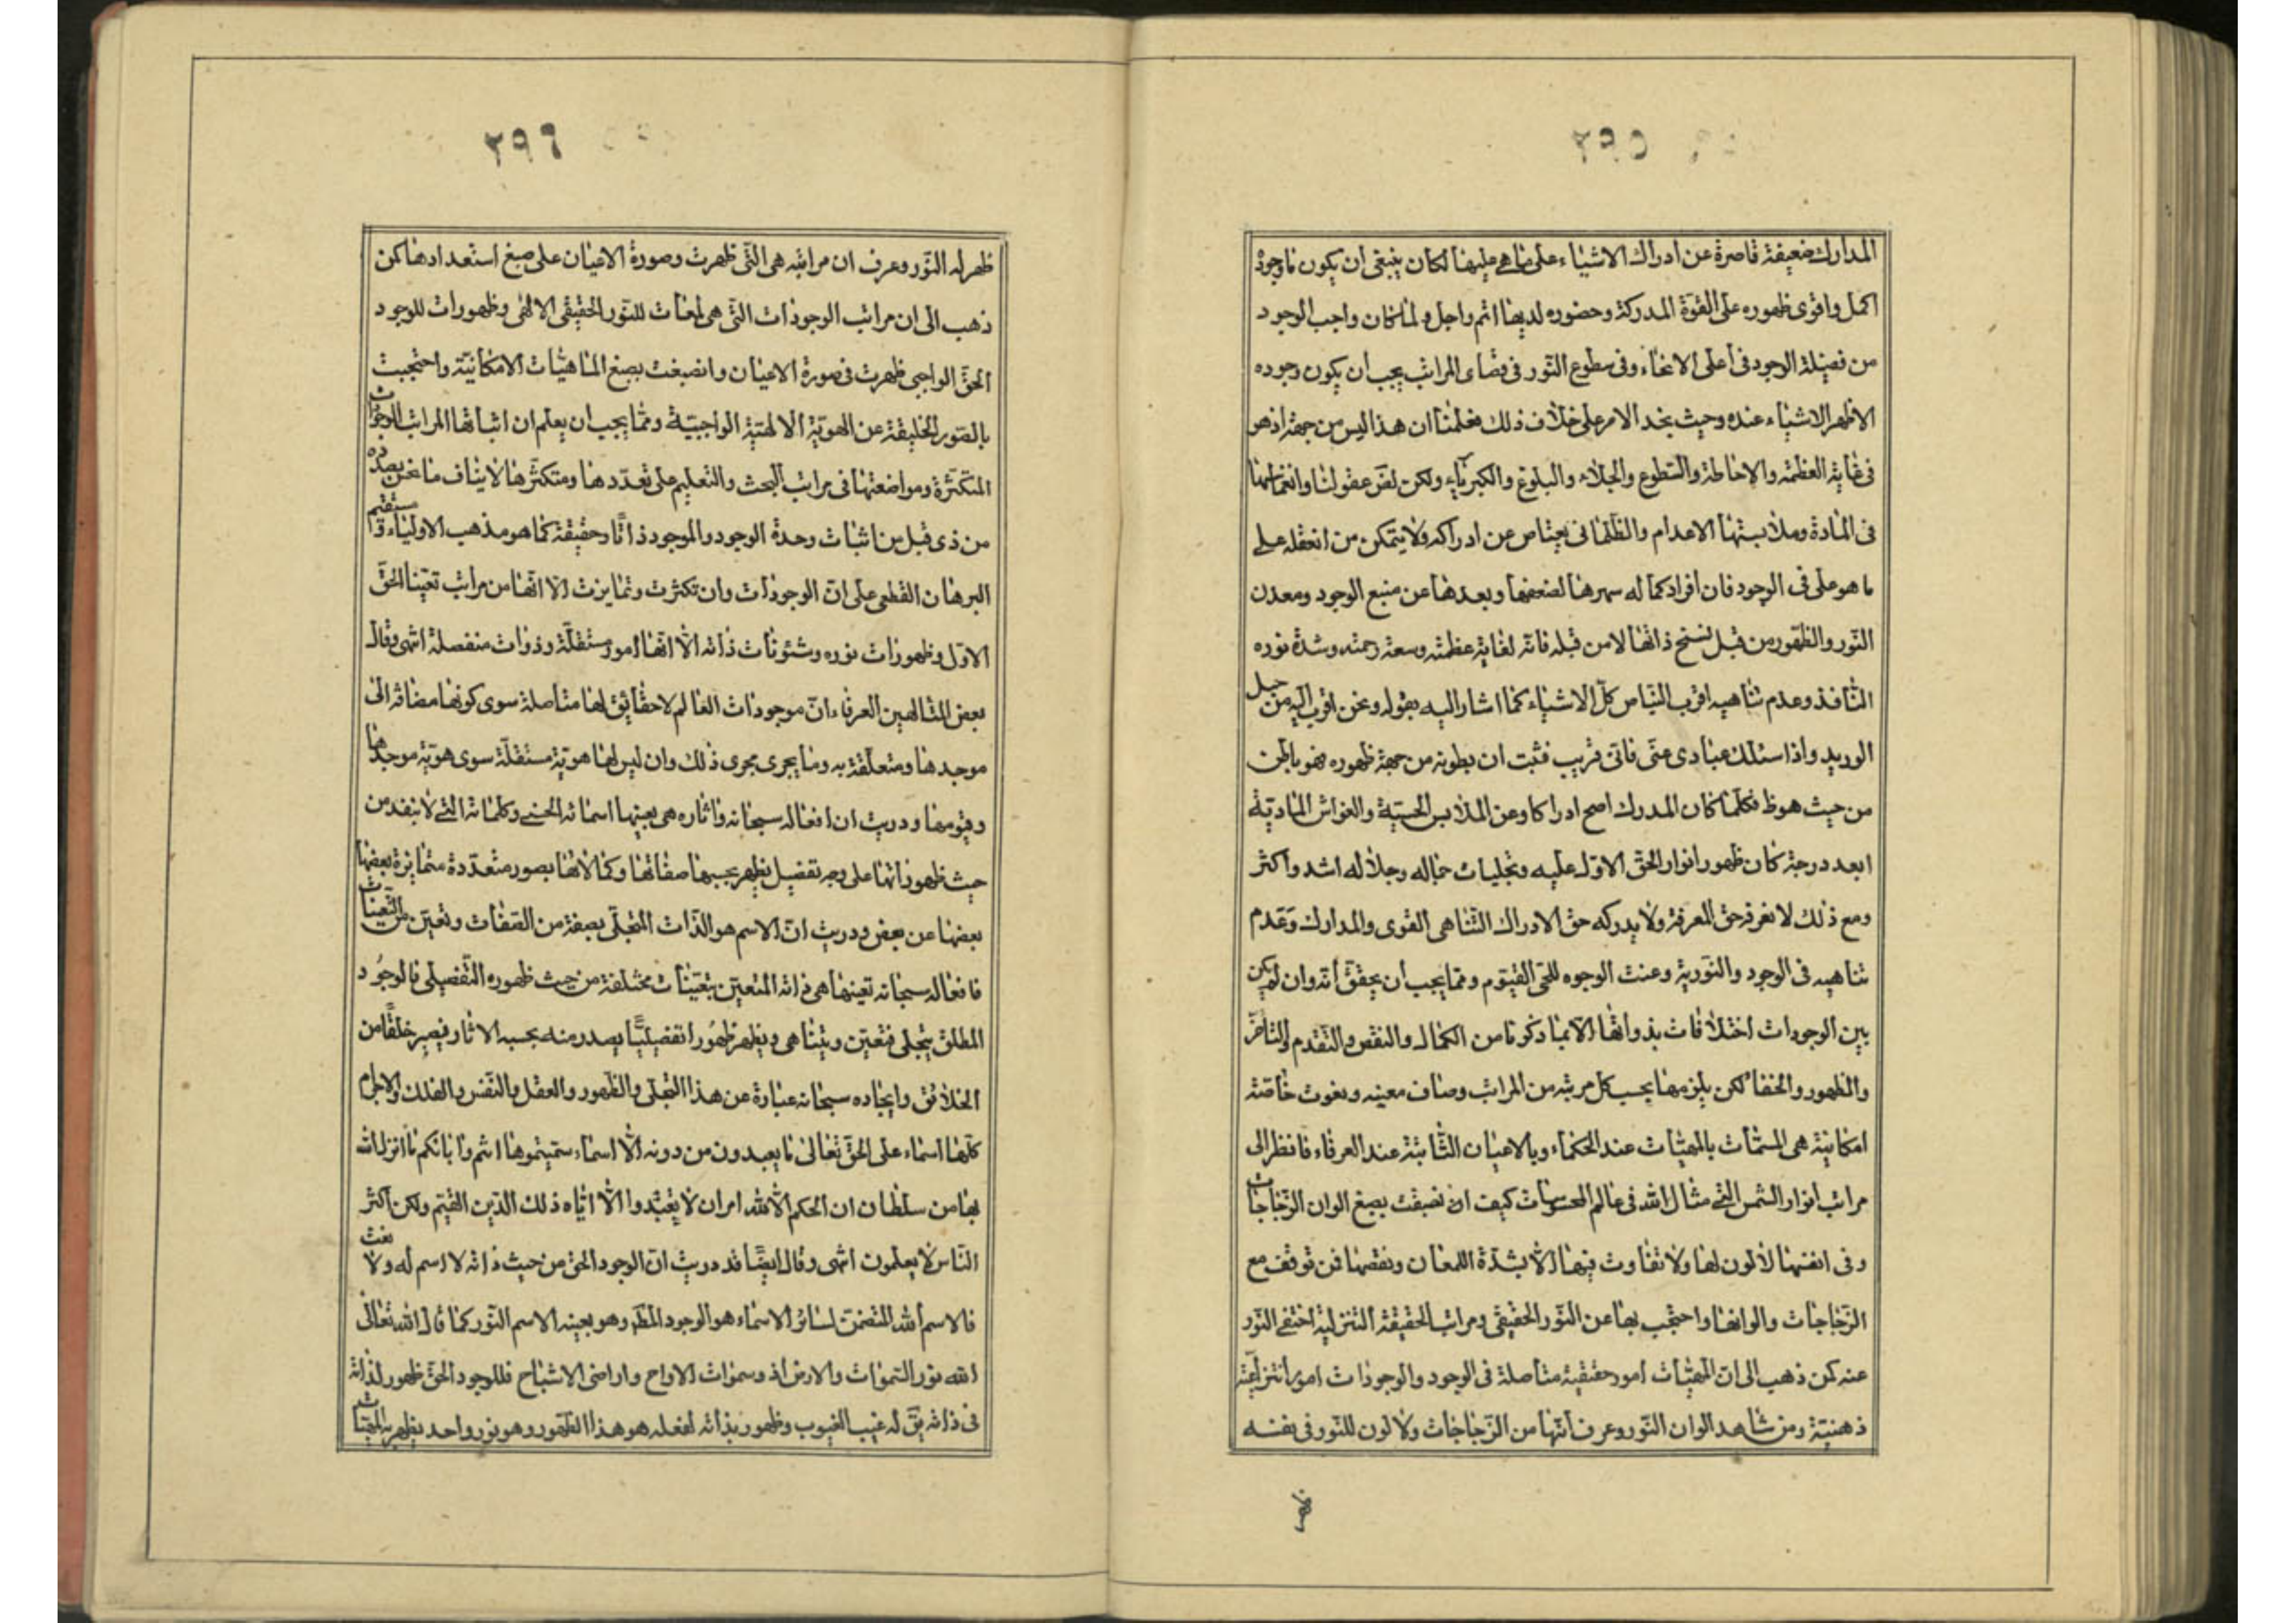 ٢٩٥
المدارك ضعيفة قاصرة عن ادراك الاشياء على ما هي عليها لكان ينبغي ان يكون ما وجوده
اكمل واقوى ظهوره على القوة المدركة وحضوره لديها اتم واجل ولما كان واجب الوجود
من فضيلة الوجود في أعلى الانحاء وفي سطوع النور في قصاى المراتب يجب أن يكون وجوده
الاظهر الاشياء عنده وحيث نجد الامر على خلاف ذلك فعلمنا ان هذا ليس من جهته اذ هو
في غاية العظمة والاحاطة والسطوع والجلاء والبلوغ والكبرياء ولكن لضعف عقولنا وانغماسها
في المادة وملابستها الاعدام والظلماني يعتاص عن ادراكه ولا يتمكن من انعقله على
ما هو على في الوجود فان افراد كماله سهرها لضعفها وبعدها عن منبع الوجود ومعدن
النور والظهور من قبل نسخ ذاتها لا من قبله فانه لغاية عظمته وسعة رحمته وشدة نوره
النافذ وعدم تناهيه اقرب الينا من كل الاشياء كما اشار اليه بقوله ونحن اقرب اليه من حبل
الوريد واذا سئلك عبادي عني فاني قريب فثبت ان بطونه من جهة ظهوره فهو باطن
من حيث هو ظ فكلما كان المدرك اصح ادراكا وعن الملابس الحسية والغواش المادية
ابعد درجة كان ظهور انوار الحق الاول عليه وتجليات جماله وجلاله اشد واكثر
ومع ذلك لا نعرفه حق المعرفة ولا يدركه حق الادراك التناهي القوى والمدارك وعدم
تناهيه في الوجود والنورية وعنت الوجوه للحي القيوم ومما يجب أن يحقق أنه وان لم يكن
بين الوجودات اختلافات بذواتها الا بما ذكرنا من الكمال والنقص والتقدم والتأخر
والظهور والخفا لكن يلزمها بحسب كل مرتبه من المراتب وصاف معينه ونعوت خاصة
امكانية هي المسمات بالمهيات عند الحكماء وبالاعيان الثابتة عند العرفاء فانظر الى
مراتب انوار الشمس التي مثال الله في عالم المحسوسات كيف انصبغت بصبغ الوان الزجاجات
وفي انفسها لا لون لها ولا تفاوت فيها الا بشدة اللمعان ونقصها فمن توقف مع
الزجاجات والوانها واحتجب بها عن النور الحقيقي ومراتب الحقيقة التنزلية اختفى النور
عنه كمن ذهب الى ان المهيات امور حقيقية متأصلة في الوجود والوجودات امور انتزاعية
ذهنية ومن شاهد الوان النور وعرف أنها من الزجاجات ولا لون للنور في نفسه
ظهر
٢٩٦
ظهر له النور وعرف ان مراتبه هي التي ظهرت وصورة الاعيان على صبغ استعدادها كمن
ذهب الى ان مراتب الوجودات التي هي لمعات للنور الحقيقي الالهي وظهورات للوجود
الحق الواجبي ظهرت في صورة الاعيان وانصبغت بصبغ الماهيات الامكانية واحتجبت
بالصور الخليقة عن الهوية الالهتية الواجبية ومما يجب ان يعلم ان اثباتها المراتب الوجودات
المتكثرة ومواضعتها في مراتب البحث والتعليم على تعددها ومتكثرها لا يناف ما نحن بصدده
من ذي قبل من اثبات وحدة الوجود والموجود ذاتا وحقيقة كما هو مذهب الاولياء وسنقيم
البرهان القطعي على ان الوجودات وان تكثرت وتمايزت الا انها من مراتب تعينا الحق
الاول وظهورات نوره وشئونات ذاته الا انها امور مستقلة وذوات منفصلة انتهى وقال
بعض المتالهين العرفاء ان موجودات العالم لا حقائق لها متأصلة سوى كونها مضافة الى
موجدها ومتعلقة به وما يجرى مجرى ذلك وان ليس لها هوية مستقلة سوى هوية موجدها
وقيومها ودريت ان افعاله سبحانه واثاره هي بعينها اسمائه الحسنى وكلماته التي لا تنفد من
حيث ظهوراتها على وجه تفصيل يظهر بحسبها صفاتها وكمالاتها بصور متعددة متمايزة بعضها
بعضها عن بعض ودريت ان الاسم هو الذات المتجلى بصفة من الصفات وتعين من التعينات
فافعاله سبحانه تعينها هي ذاته المتعين بتعينات مختلفة من حيث ظهوره التفصيلى فالوجود
المطلق يتجلى فتعين ويتناهى ويظهر ظهورا تفصيليا يصدر منه بحسبه الاثار فيصير خلقا من
الخلائق وايجاده سبحانه عبارة عن هذا التجلى والظهور والعقل والنفس والفلك والاجرام
كلها اسماء على الحق تعالى ما يعبدون من دونه الا اسماء سميتموها انتم وابائكم ما انزل الله
بها من سلطان ان الحكم الا لله امر ان لا يعبدوا الا اياه ذلك الدين القيم ولكن اكثر
الناس لا يعلمون انتهى وقال ايضا قد دريت ان الوجود الحق من حيث ذاته لا اسم له ولا نعت
فالاسم الله المتضمن لسائر الاسماء هو الوجود المظهر وهو بعينه الاسم النور كما قال الله تعالى
الله نور السموات والارض اذ وسموات الارواح واراضى الاشباح فللوجود الحق ظهور لذاته
في ذاته يق له غيب الغيوب وظهور بذاته لفعله هو هذا الظهور وهو نور واحد يظهر به المهيات